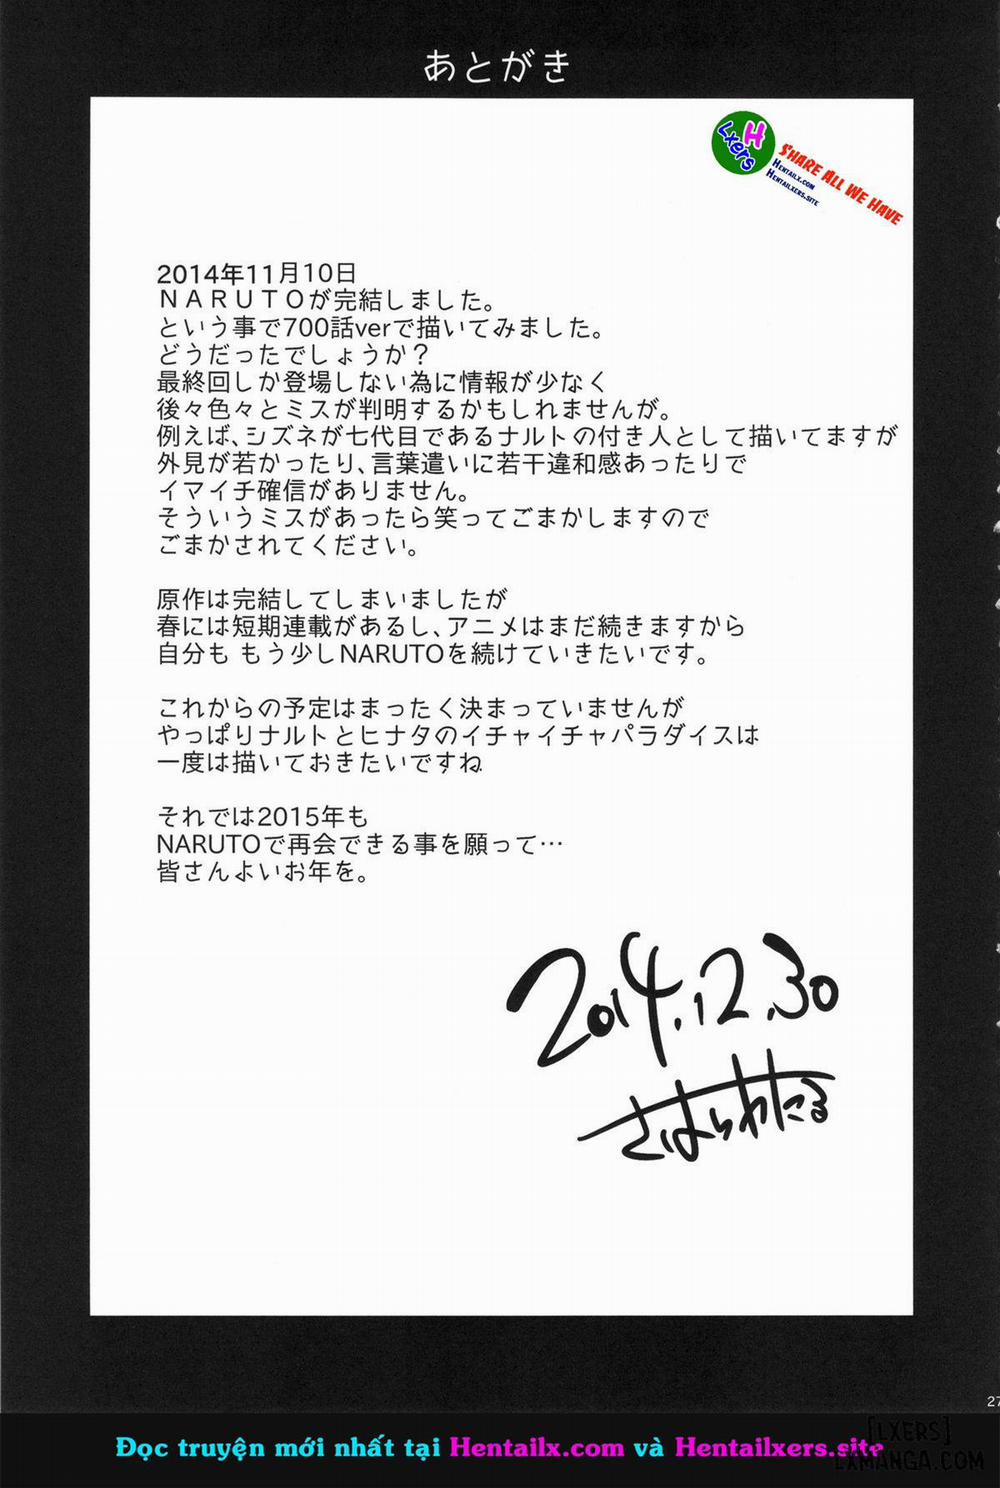 あとがき
H
Lxers
Share All We Have
Hentailx.com
Hentailxers.site
2014年11月10日
NARUTOが完結しました。
という事で700話verで描いてみました。
どうだったでしょうか？
最終回しか登場しない為に情報が少なく
後々色々とミスが判明するかもしれませんが。
例えば、シズネが七代目であるナルトの付き人として描いてますが
外見が若かったり、言葉遣いに若干違和感あったりで
イマイチ確信がありません。
そういうミスがあったら笑ってごまかしますので
ごまかされてください。
原作は完結してしまいましたが
春には短期連載があるし、アニメはまだ続きますから
自分も もう少しNARUTOを続けていきたいです。
これからの予定はまったく決まっていませんが
やっぱりナルトとヒナタのイチャイチャパラダイスは
一度は描いておきたいですね
それでは2015年も
NARUTOで再会できる事を願って…
皆さんよいお年を。
2014.12.30
さはらわたる
27
Đọc truyện mới nhất tại Hentailx.com và Hentailxers.site
[LXERS]
LXMANGA.COM